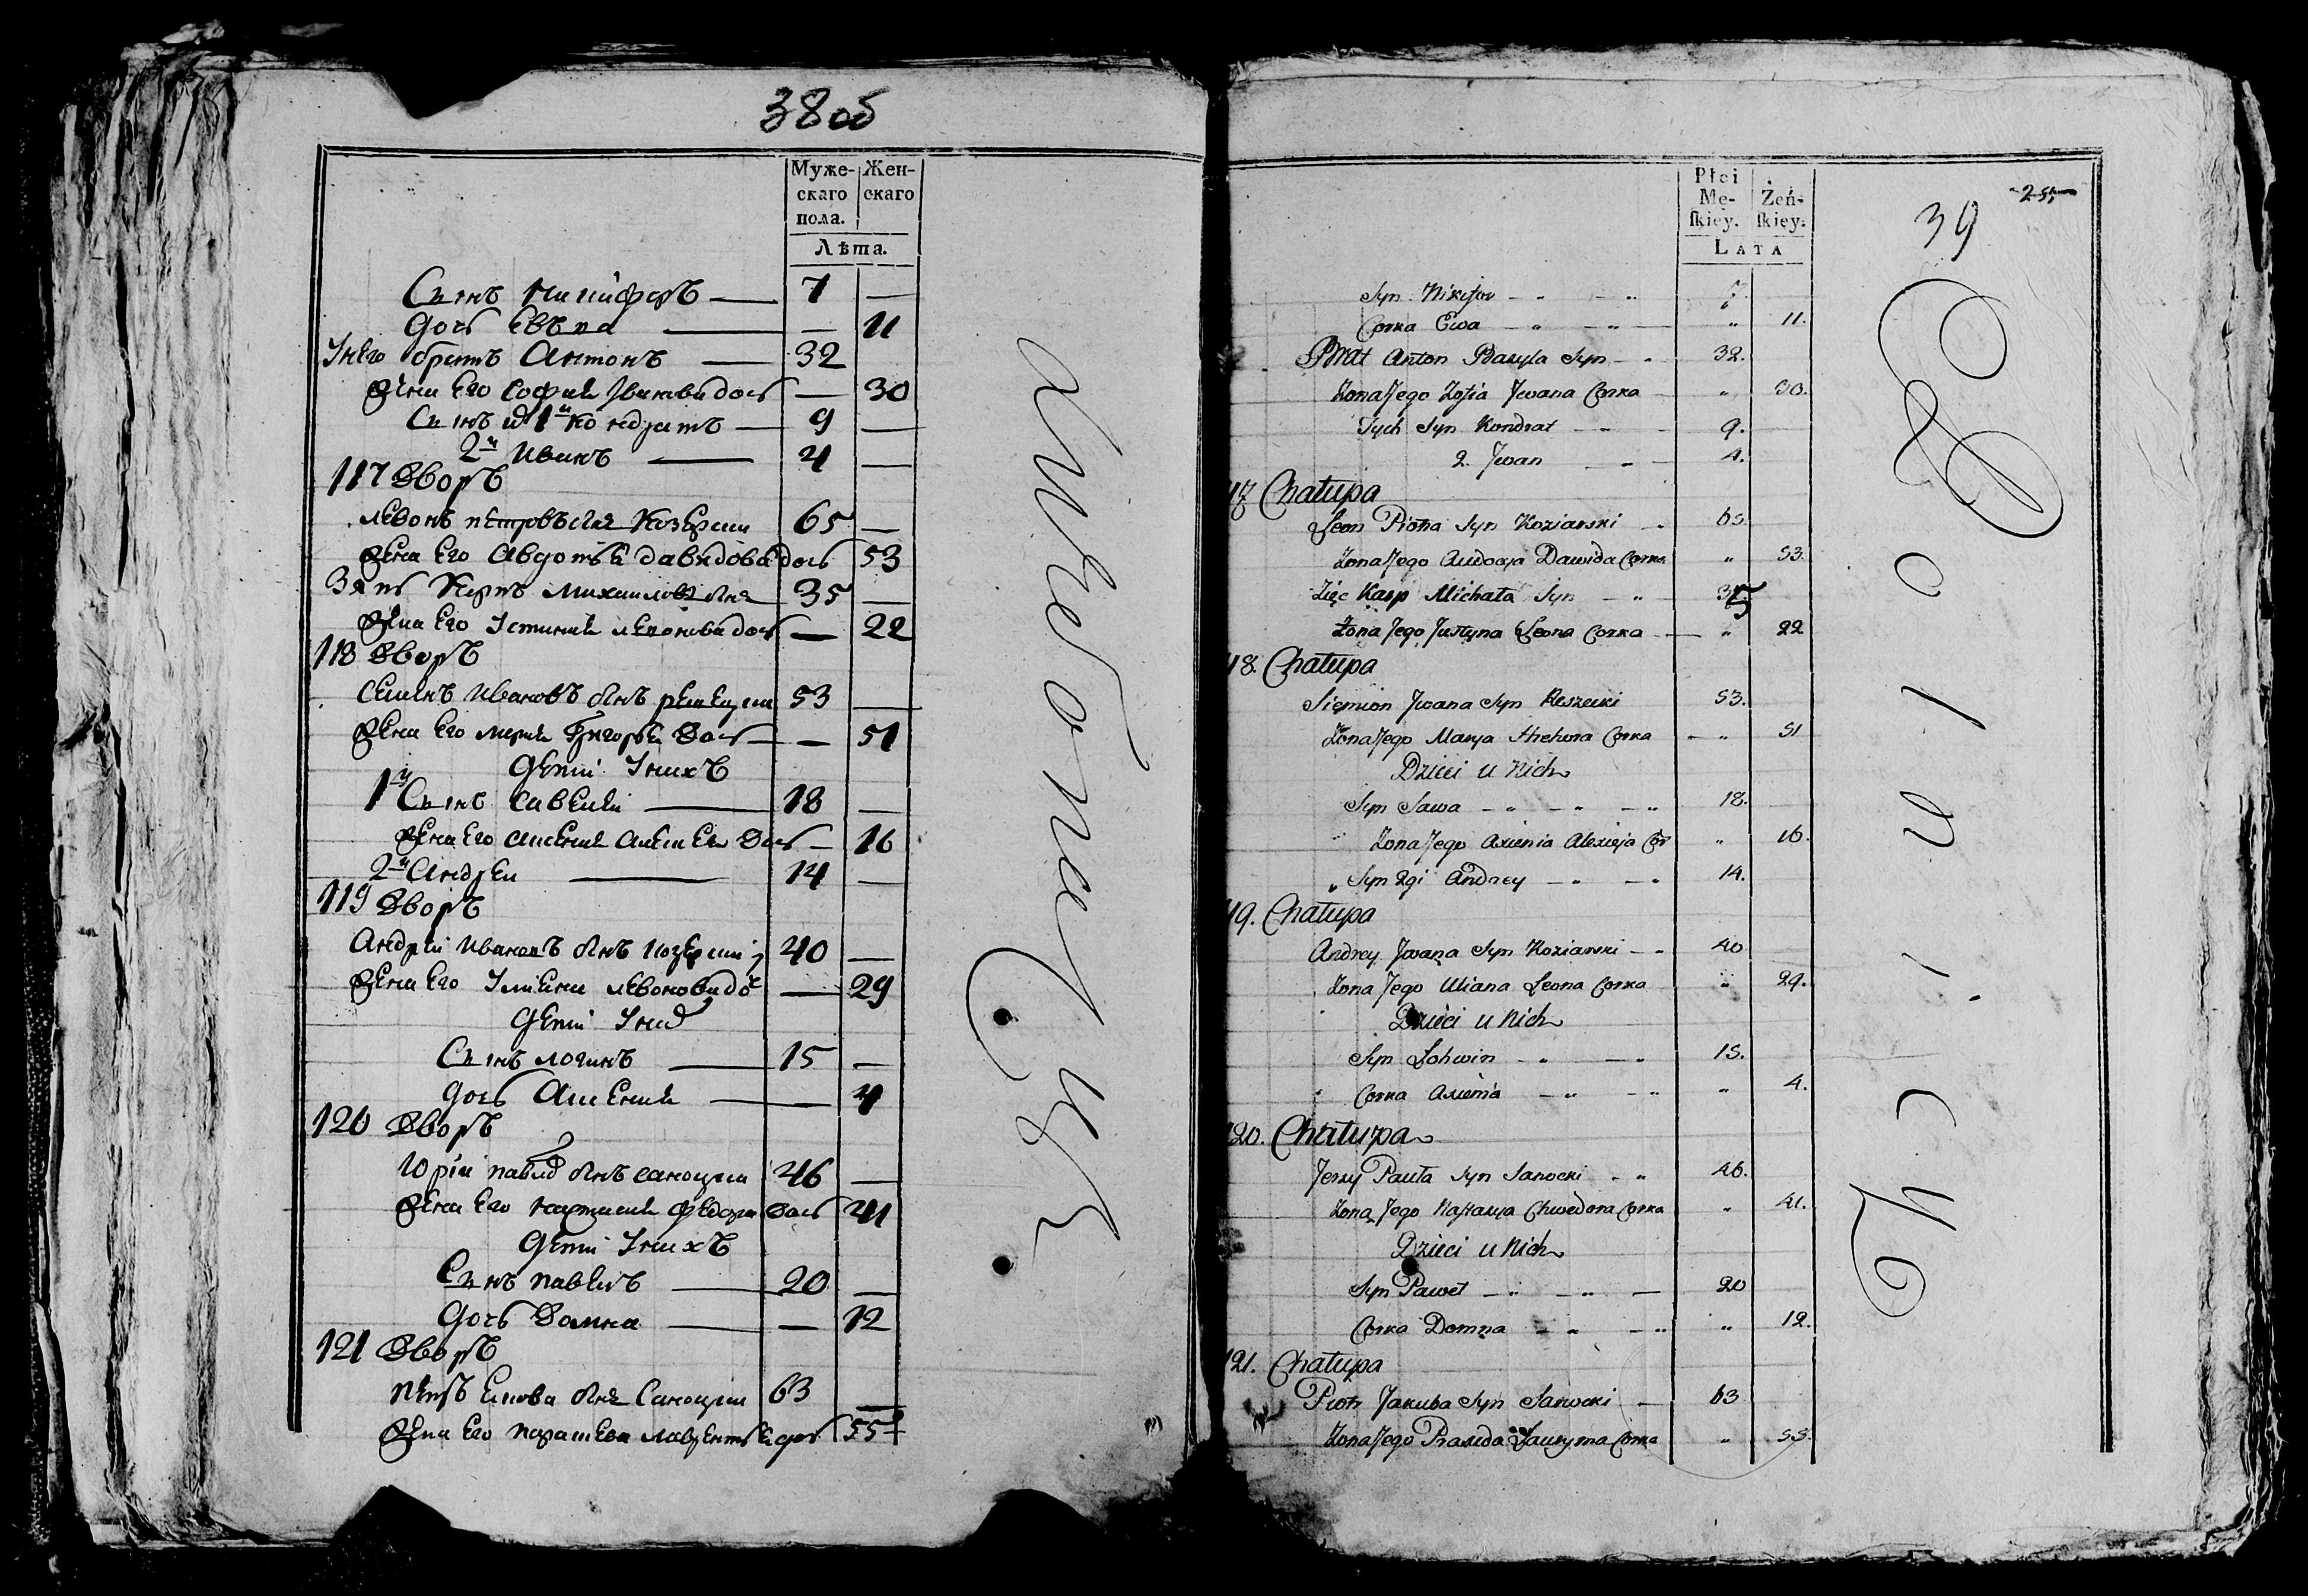 38 об
Муже-
скаго
пола.
Жен-
скаго
Лѣта.
Сынъ Никифоръ — 7 —
Дочь Евва — — 11
У него братъ Антонъ — 32
Жена его София Иванова дочь — 30
Сынъ 1й Кондратъ — 9 —
2й Иванъ — 4 —
117 Дворъ
Левонъ Петровъ Козерски 65 —
Жена его Авдотья Давидова дочь 53
Зять Карпъ Михаилов 35 —
Жена его Устиния Левонова дочь — 22
118 Дворъ
Семенъ Ивановъ снъ Решецки 53 —
Жена его Мария Григорья дочь — — 51
Дети У нихъ
1й Сынъ Савели — 18 —
Жена его Аксения Алексеева дочь — 16
2й Андрей — 14 —
119 Дворъ
Андрей Ивановъ снъ Козерски 40 —
Жена его Улияна Левонова до — 29
Дети У них
Сынъ Логинъ — 15 —
Дочь Аксения — 4
120 Дворъ
Юрий Павлов снъ Саноцки 46 —
Жена его Настасия Федора дочь 41
Дети У нихъ
Сынъ Павелъ — 20 —
Дочь Домна — — 12
121 Дворъ
Петръ снъ Саноцки 63 —
Жена его Параскева Лаврентьева доч 55
Płci
Mę-
ſkiey.
Żeń-
ſkiey.
LATA
39
25
Syn Nikifor — „ — „ 7.
Corka Ewa — „ — „ — „ 11.
Brat Anton Bazyla Syn — „ 32.
Zona Jego Zofia Jwana Corka — „ 30.
Tych Syn Kondrat — „ — 9.
2. Jwan — „ — 4.
117 Chałupa
Leon Piotra Syn Koziarski — 65.
Zona Jego Audocja Dawida Corka „ 53.
Zięc Karp Michała Syn — „ 35
Zona Jego Justyna Leona Corka — „ 22
118. Chałupa
Siemion Jwana Syn Reszecki 53.
Zona Jego Marya Hrehora Corka — „ 51
Dzieci u Nich
Syn Sawa — „ — „ — „ 18.
Zona Jego Axienia Alexieja Cor „ 16.
„ Syn 2gi Andrey — „ — „ 14.
119. Chałupa
Andrey Jwana Syn Koziarski — „ 40
Zona Jego Uliana Leona Corka „ 29.
Dzieci u Nich
Syn Łohwin — „ — „ 15.
Corka Axienia — „ — „ „ 4.
120. Chałupa
Jerzy Pauła Syn Sanocki — „ 46.
Zona Jego Nastazya Chwedora Corka „ 41.
Dzieci u Nich
Syn Paweł — „ — „ — 20
Corka Domna — „ — „ „ 12.
121. Chałupa
Piotr Jakuba Syn Sanocki — 63
Zona Jego Praxeda Ławryna Corka „ 55.